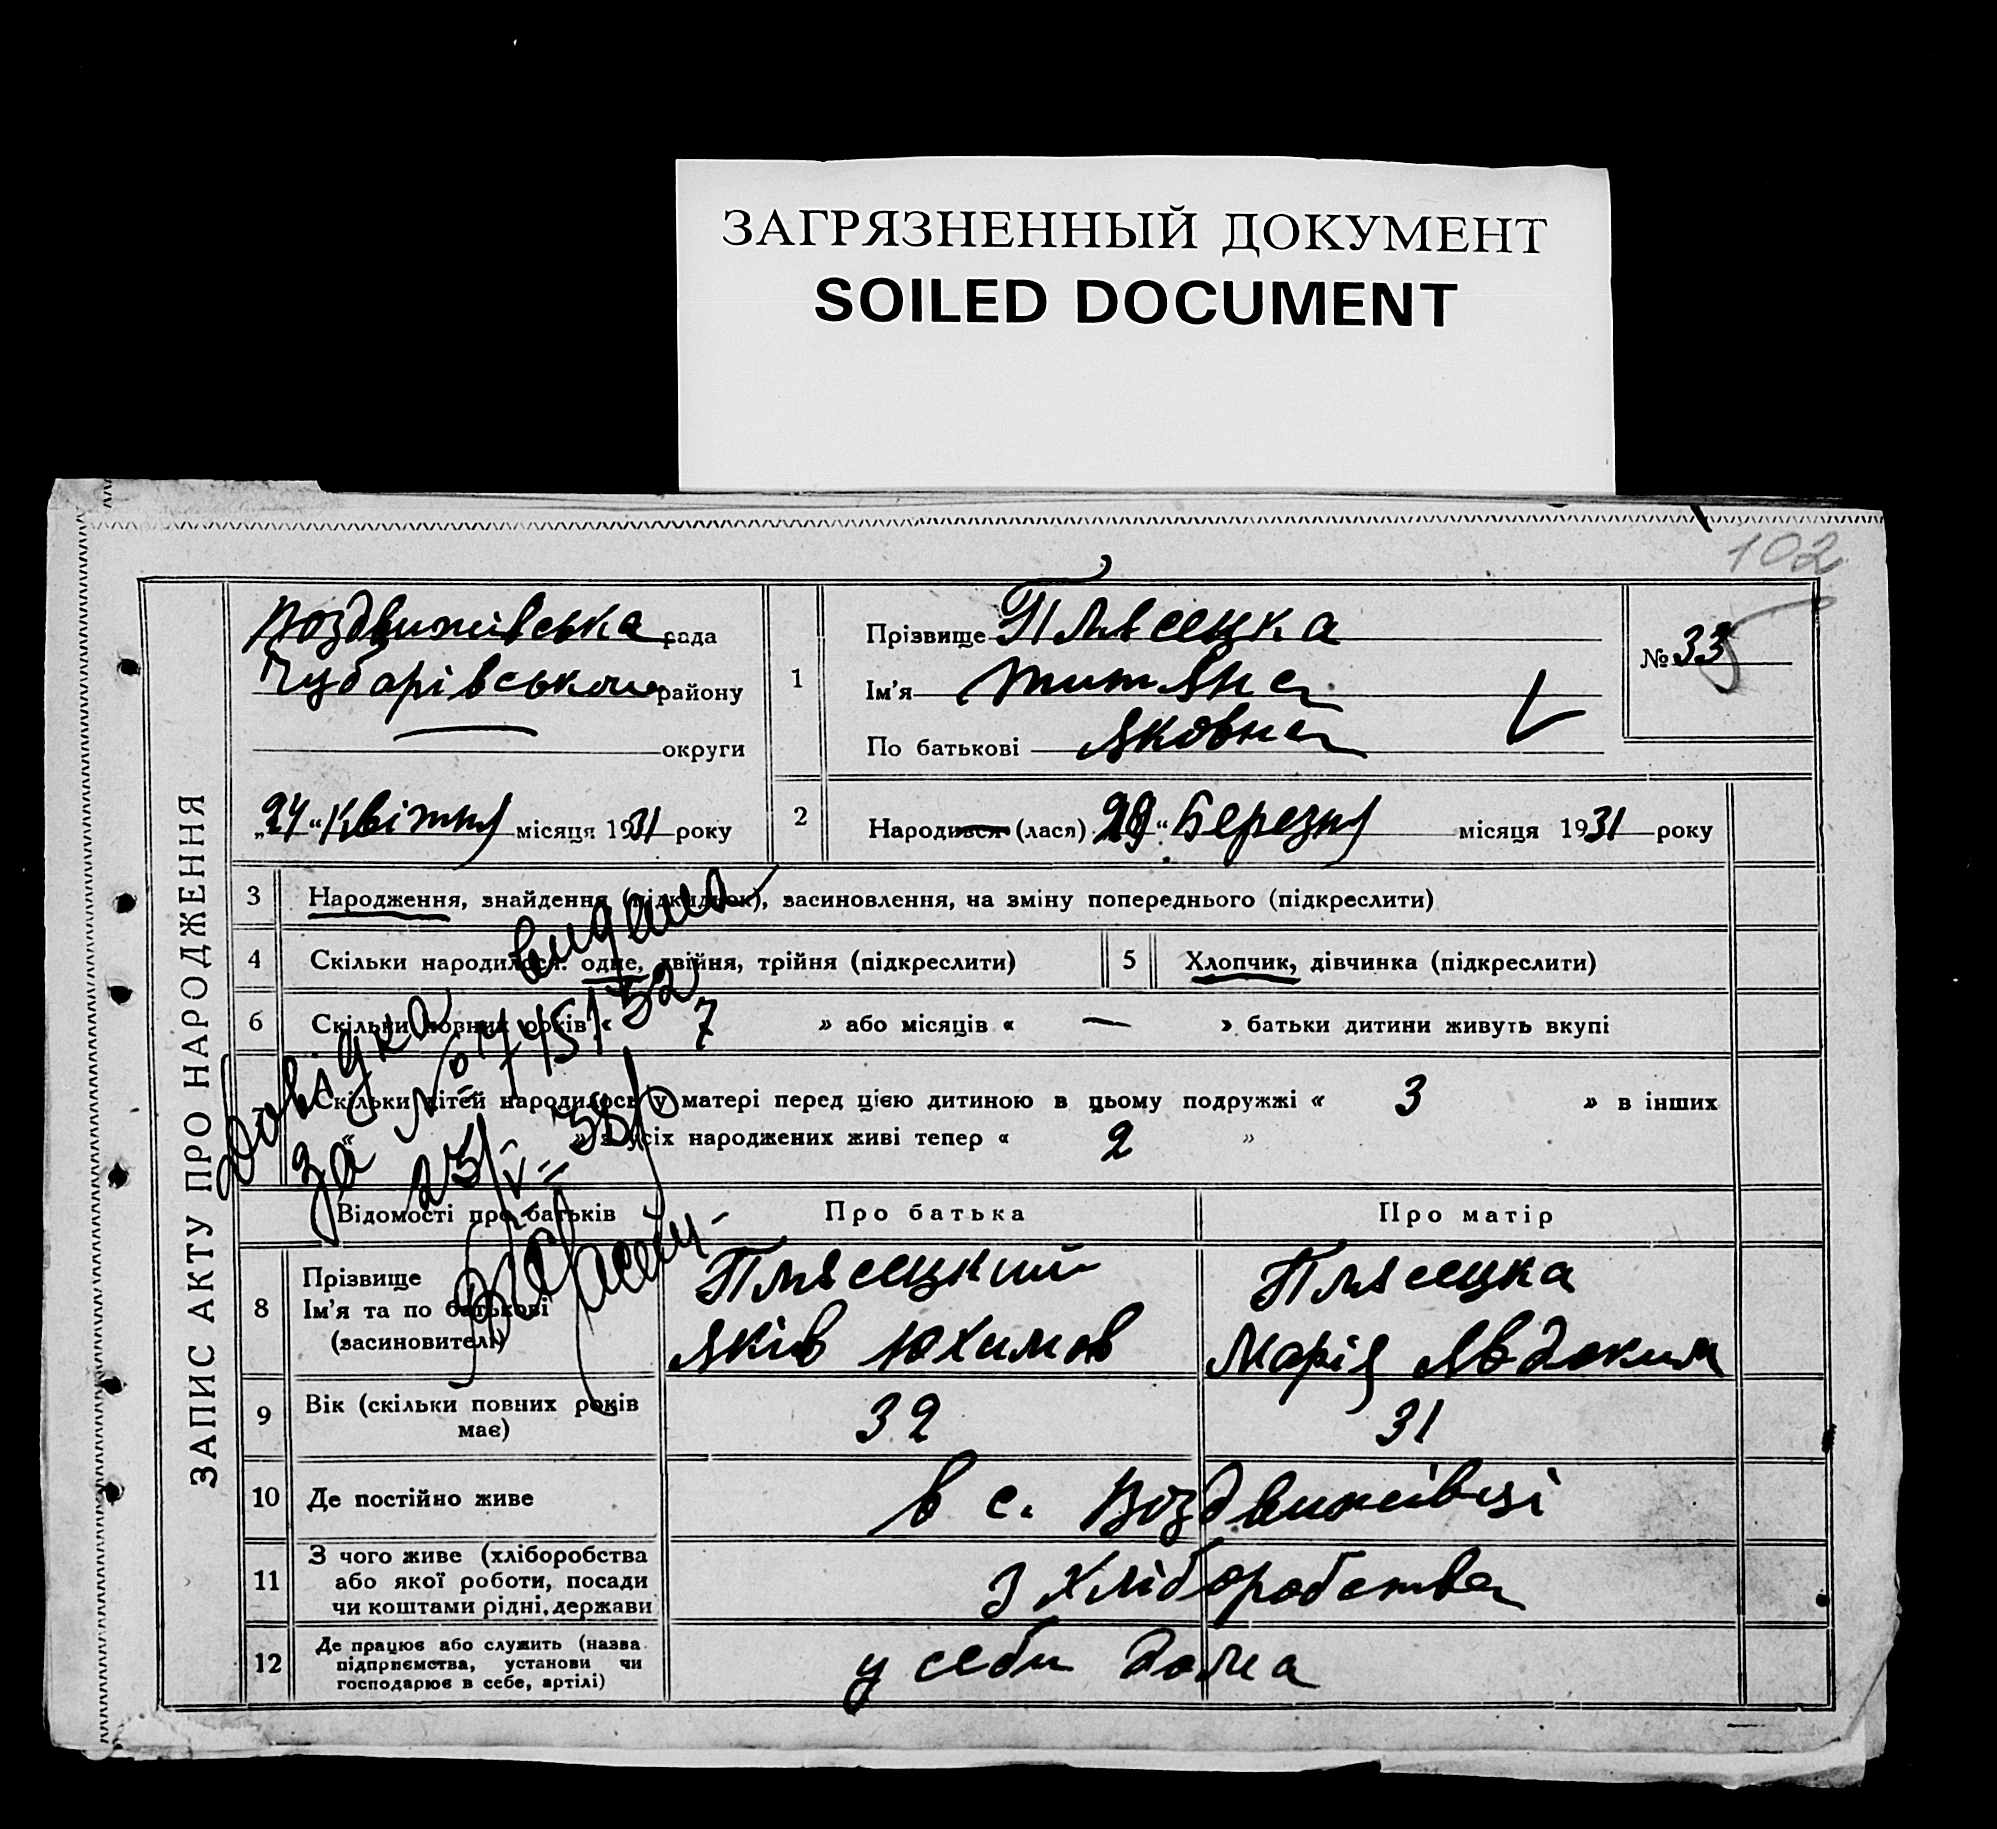 ЗАГРЯЗНЕННЫЙ ДОКУМЕНТ
SOILED DOCUMENT
102
ЗАПИС АКТУ ПРО НАРОДЖЕННЯ
Воздвижівська рада
Чубарівського району
округи
„24“ Квітня місяця 1931 року
1
Прізвище Плясецка
Ім'я Титяна
По батькові Яковна
№ 33
2
Народився (лася) 29 “ Березня місяця 1931 року
3 Народження, знайдення (підкидьок), засиновлення, на зміну попереднього (підкреслити)
4 Скільки народилося: одне, двійня, трійня (підкреслити)
5 Хлопчик, дівчинка (підкреслити)
6 Скільки повних років « 7 » або місяців « — » батьки дитини живуть вкупі
Скільки дітей народилось у матері перед цією дитиною в цьому подружжі « 3 » в інших
« » з усіх народжених живі тепер « 2 »
Довідка видана
за №
Відомості про батьків
Про батька
Про матір
8 Прізвище
Ім'я та по батькові
(засиновителі)
Плясецкий
Яків Юхимов
Плясецка
Марія Явдоким
9 Вік (скільки повних років
має)
32
31
10 Де постійно живе
в с. Воздвижівці
11 З чого живе (хліборобства
або якої роботи, посади
чи коштами рідні, держави
з хліборобства
12 Де працює або служить (назва
підприємства, установи чи
господарює в себе, артілі)
у себи дома